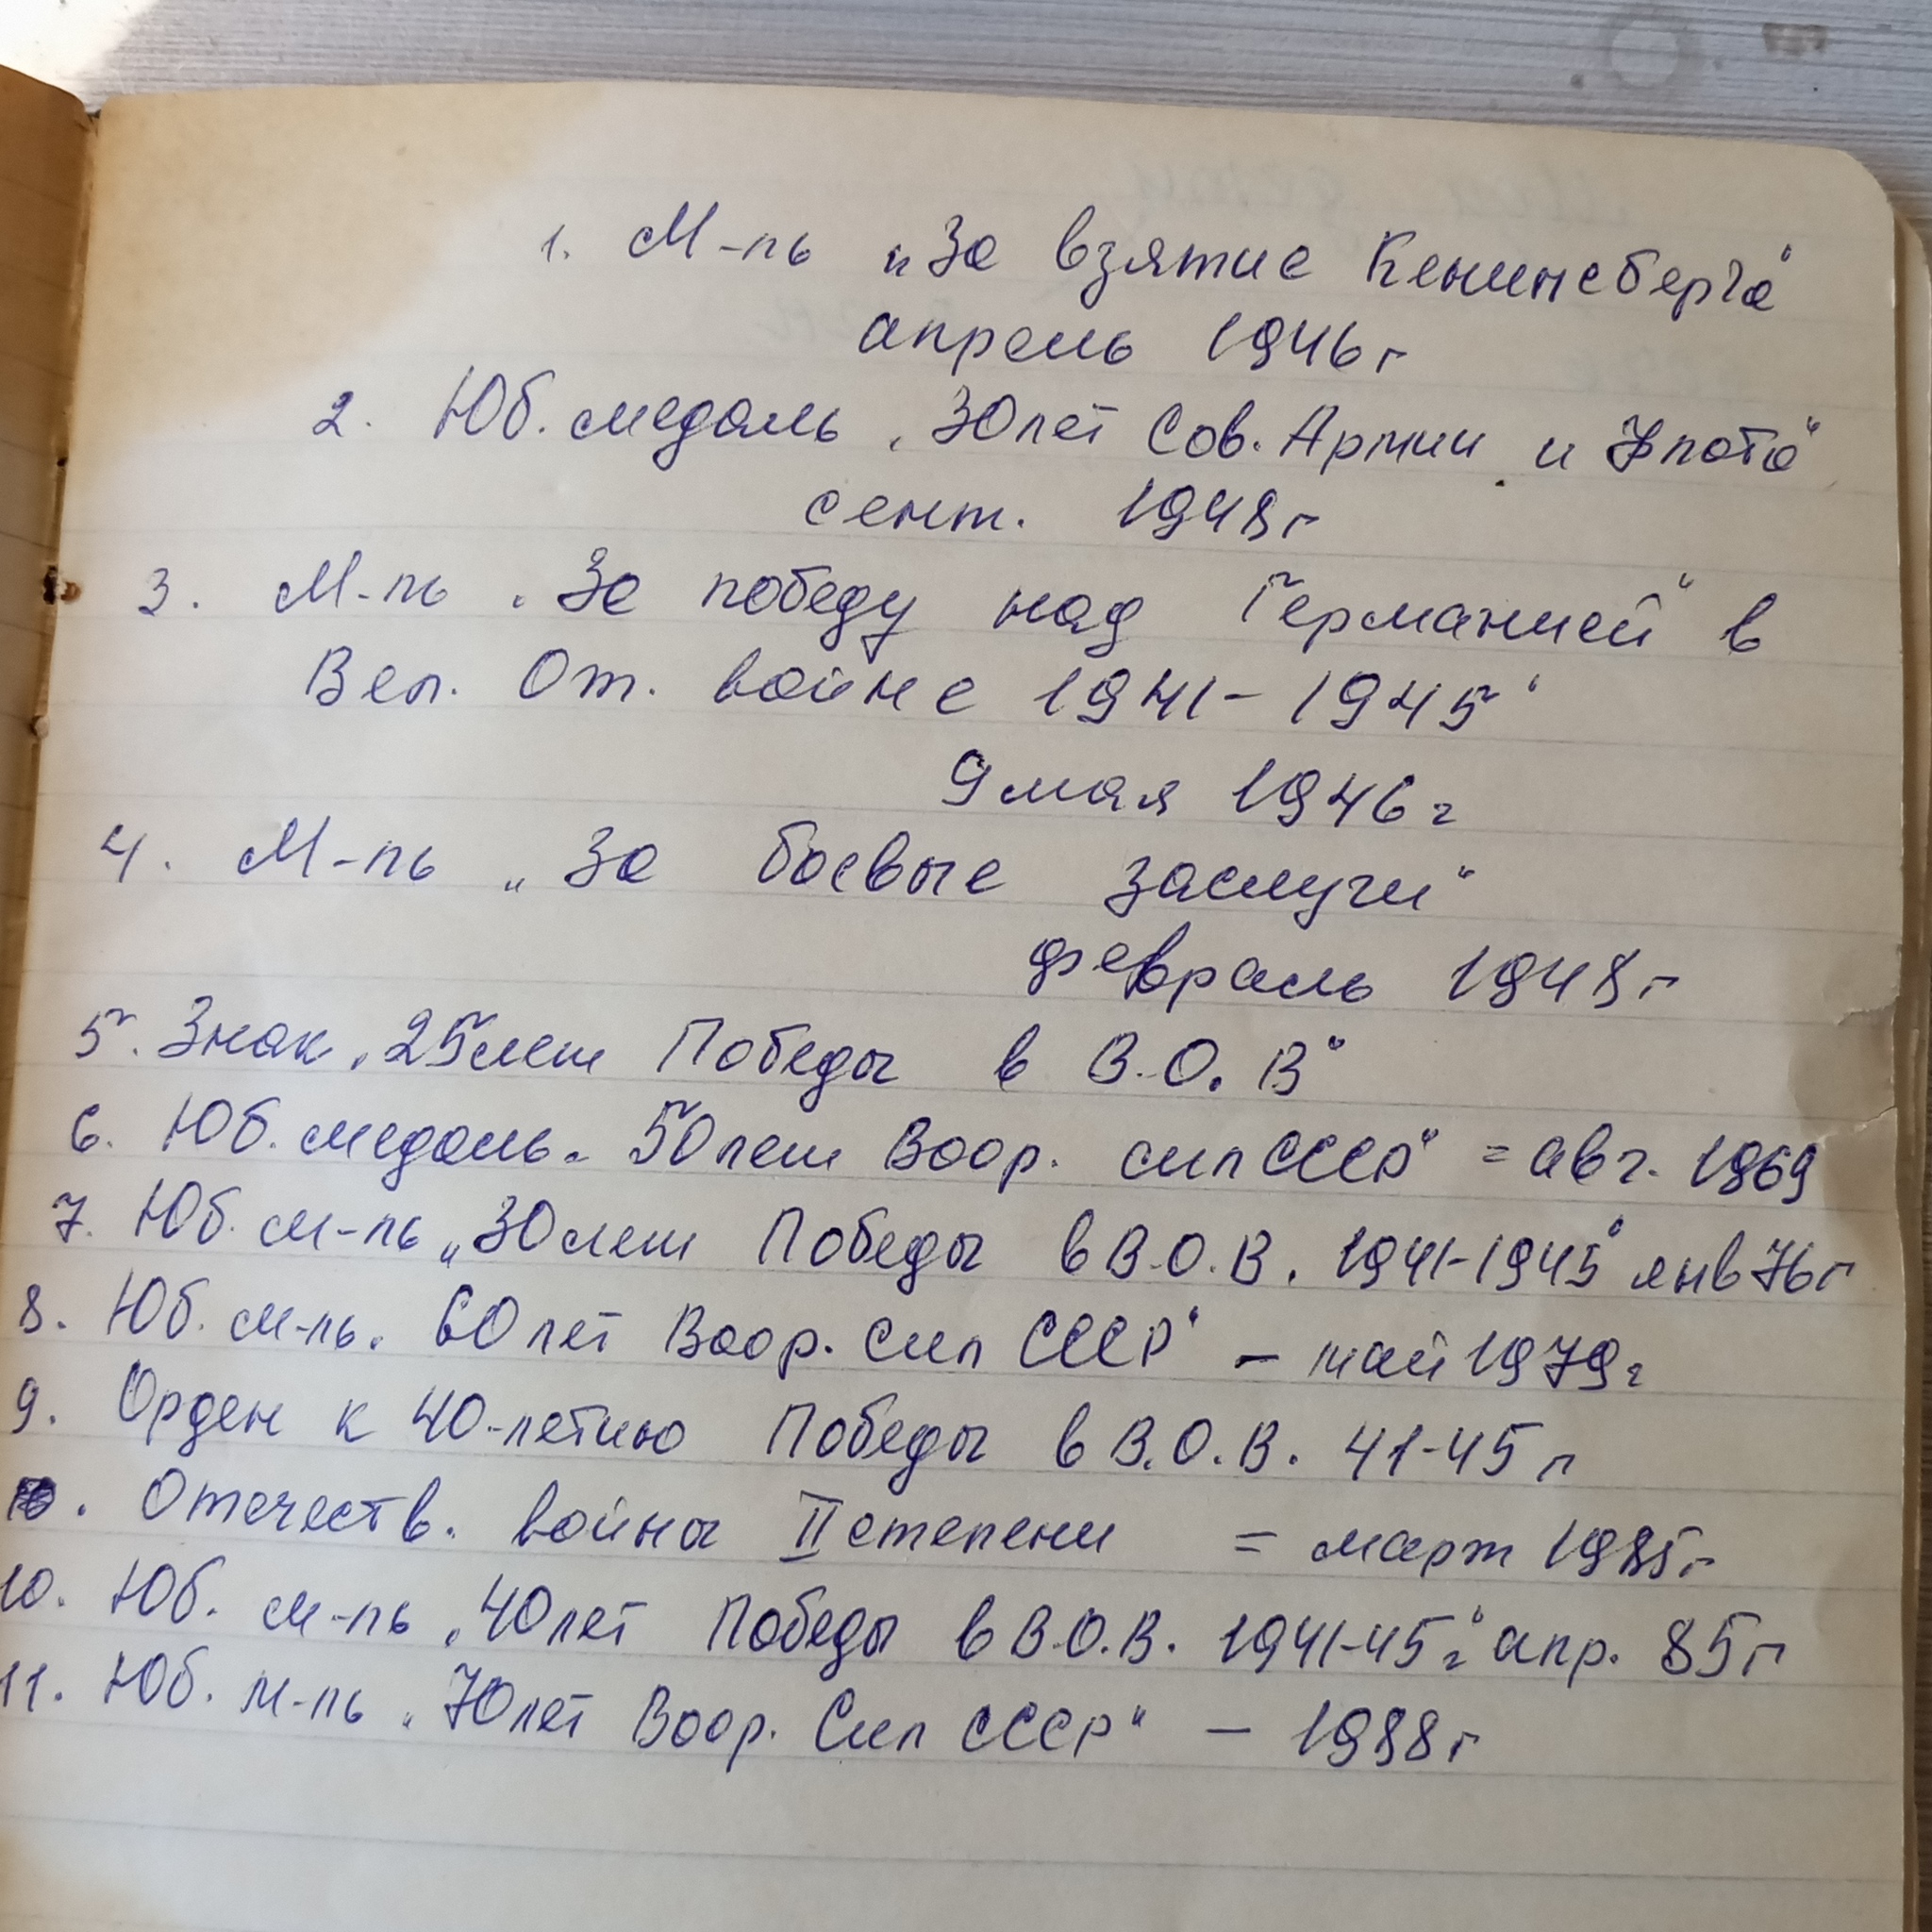 1. М-ль „За взятие Кенинсберга“
апрель 1946г
2. Юб. медаль „30 лет Сов. Армии и Флота“
сент. 1948г
3. М-ль „За победу над Германией“ в
Вел. От. войне 1941-1945“
9 мая 1946г
4. М-ль „За боевые заслуги“
февраль 1948г
5. Знак „25 лет Победы в В.О.В“
6. Юб. медаль „50 лет Воор. сил СССР“ = авг. 1969
7. Юб. м-ль „30 лет Победы в В.О.В. 1941-1945“ янв 76г
8. Юб. м-ль „60 лет Воор. Сил СССР“ - май 1979г
9. Орден к 40-летию Победы в В.О.В. 41-45г
Отечеств. войны II степени = март 1985г
10. Юб. м-ль „40 лет Победы в В.О.В. 1941-45г“ апр. 85г
11. Юб. м-ль „70 лет Воор. Сил СССР“ - 1988г